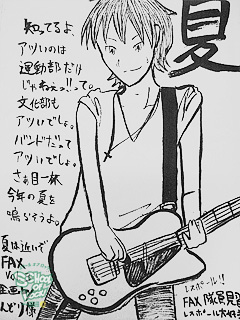 夏
知ってるよ、
アツいのは
運動部だけ
じゃねぇっ!!って。
文化部も
アツいでしょ。
バンドだって
アツいでしょ。
さぁ目一杯
今年の夏を
鳴らそうよ。
夏は近いで
FAX
レスポール!!
FAX
レスポール大好き